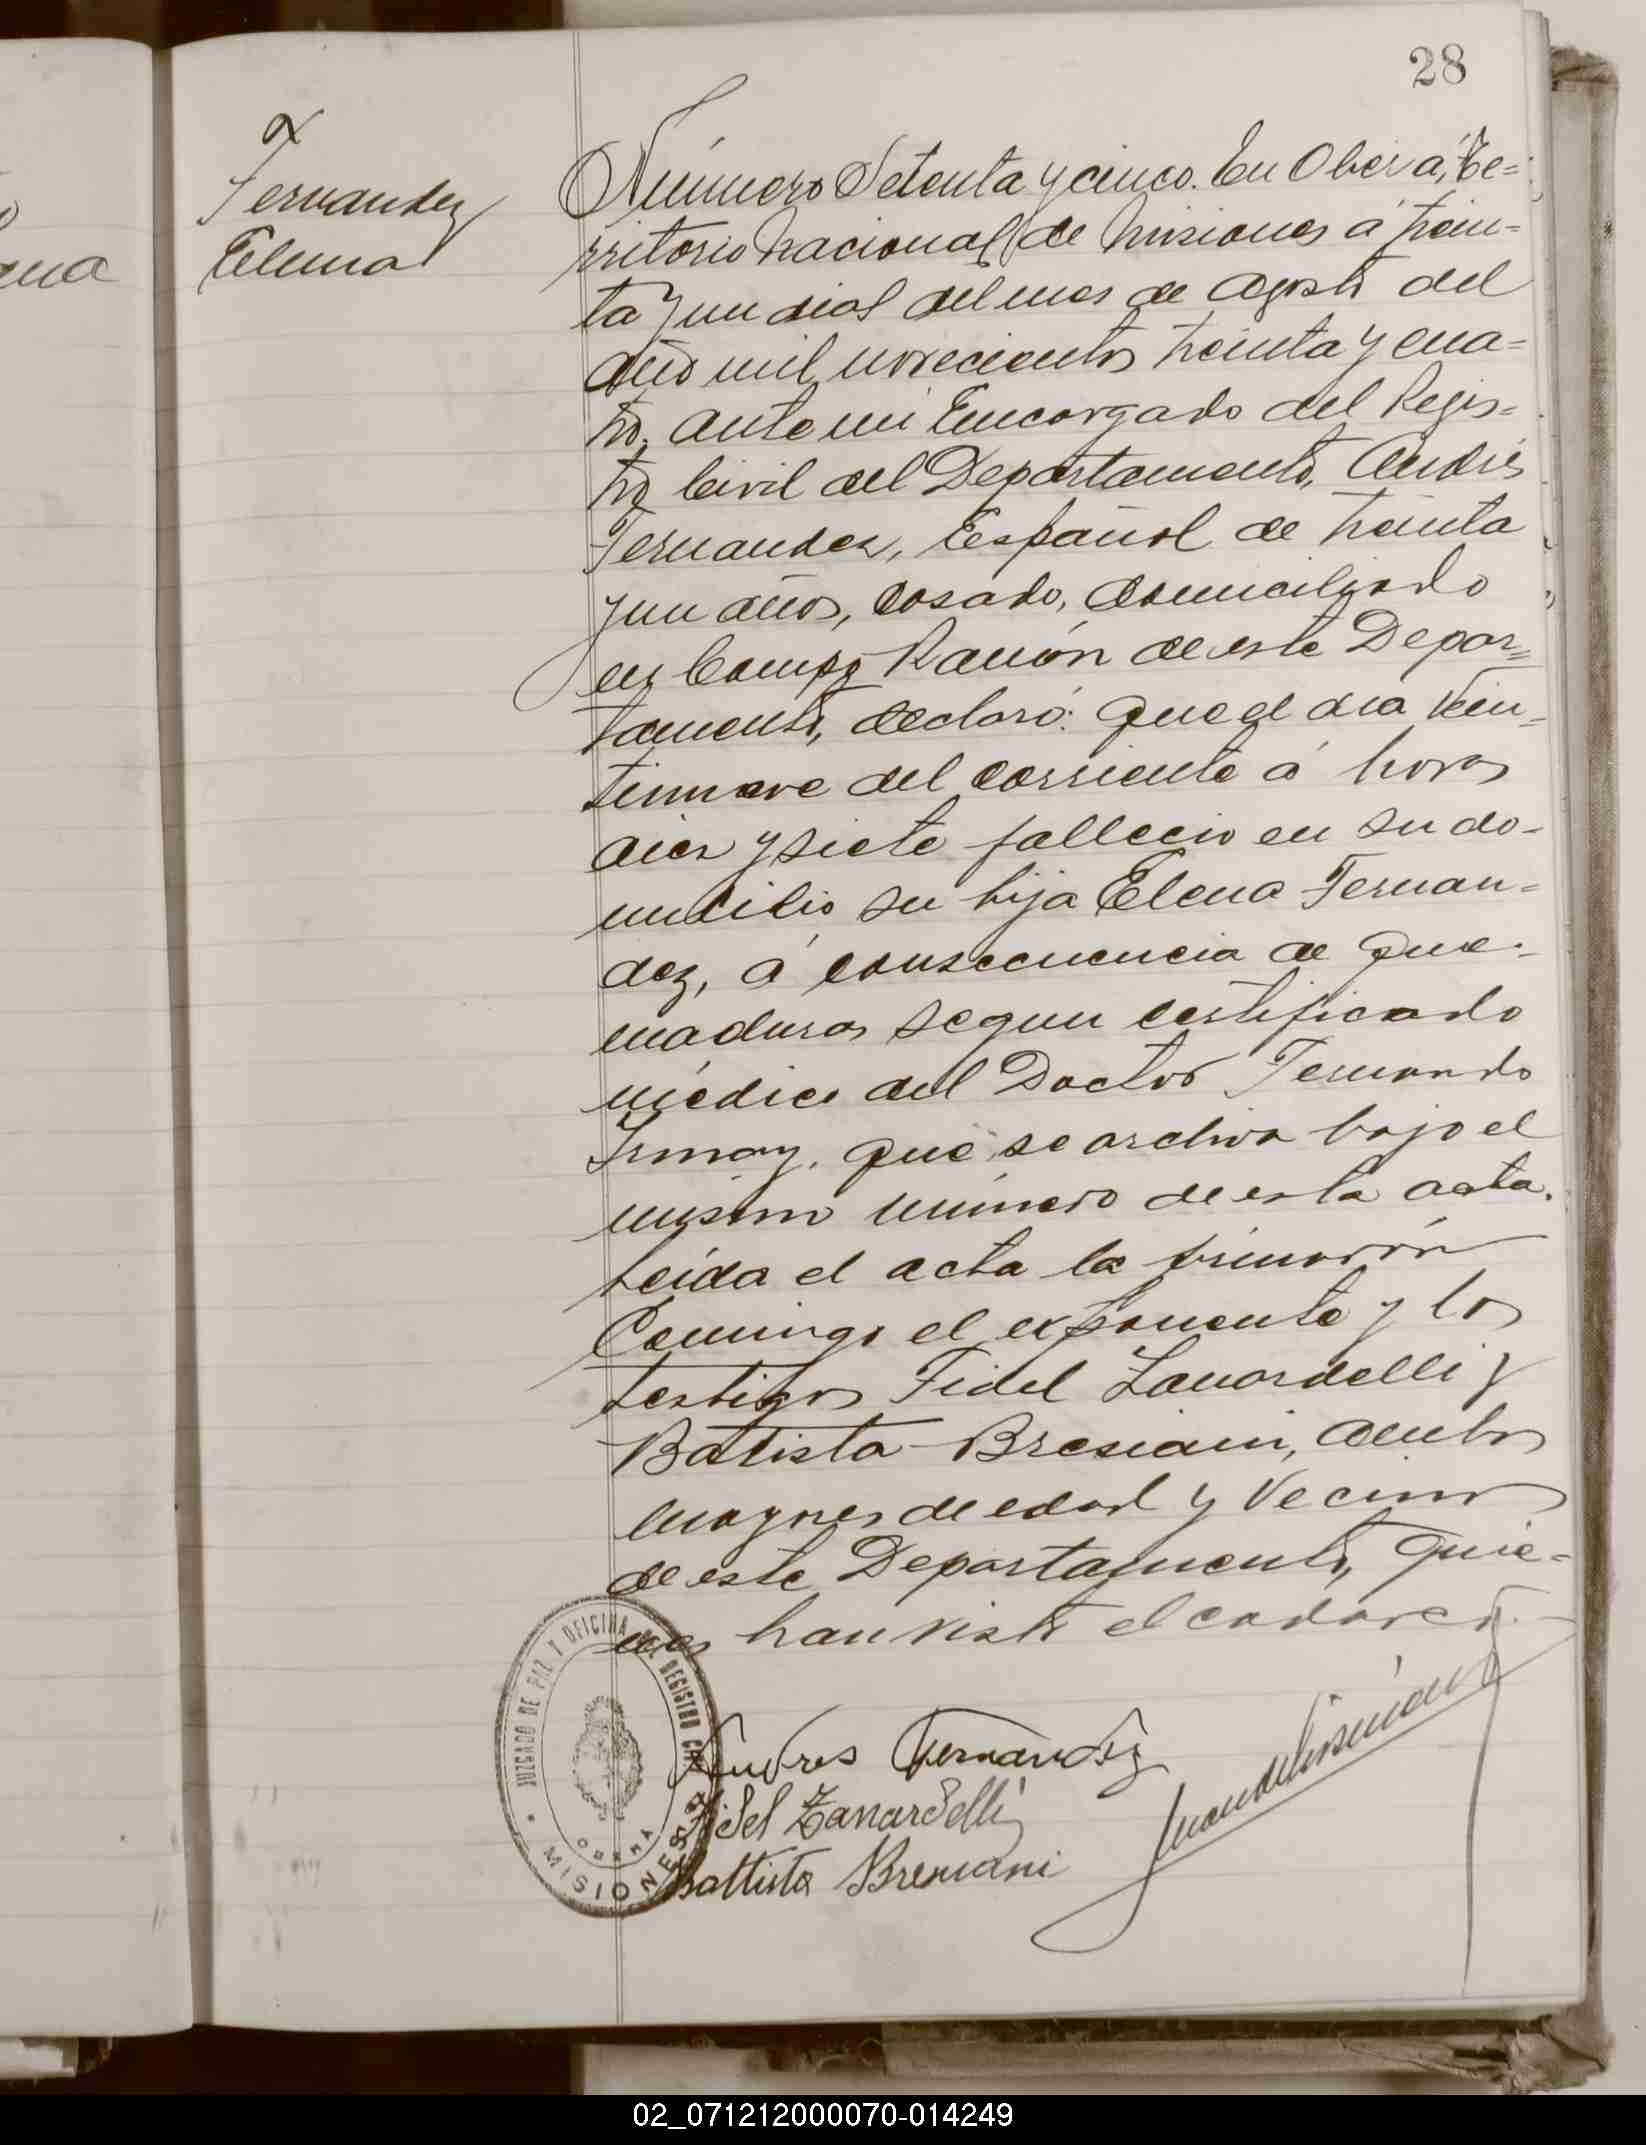 28
Fernandez
Elena
Número Setenta y cinco. En Oberá, Te=
rritorio Nacional de Misiones á trein=
ta y un dias del mes de Agosto del
año mil novecientos treinta y cua=
tro, ante mi Encargado del Regis=
tro Civil del Departamento, Andrés
Fernandez, Español de treinta
y un años, casado, domiciliado
en Campo Ramón de este Depar=
tamento, declaró: que el dia vein=
tinueve del corriente á horas
diez y siete fallecio en su do-
micilio su hija Elena Fernan=
dez, á consecuencia de que-
maduras segun certificado
médico del Doctor Fernando
Irmay, que se archiva bajo el
mismo número de esta acta.
Leida el acta la firmarón
Conmigo el exponente y los
testigos Fidel Zanardelli y
Batista Bresciani, ambos
mayores de edad y vecinos
de este Departamento, quie=
nes han visto el cadaver.
JUZGADO DE PAZ Y OFICINA DEL REGISTRO CIVIL
OBERA
MISIONES
Andres Fernandez
Fidel Zanardelli
Battista Bresciani
ana
02_071212000070-014249